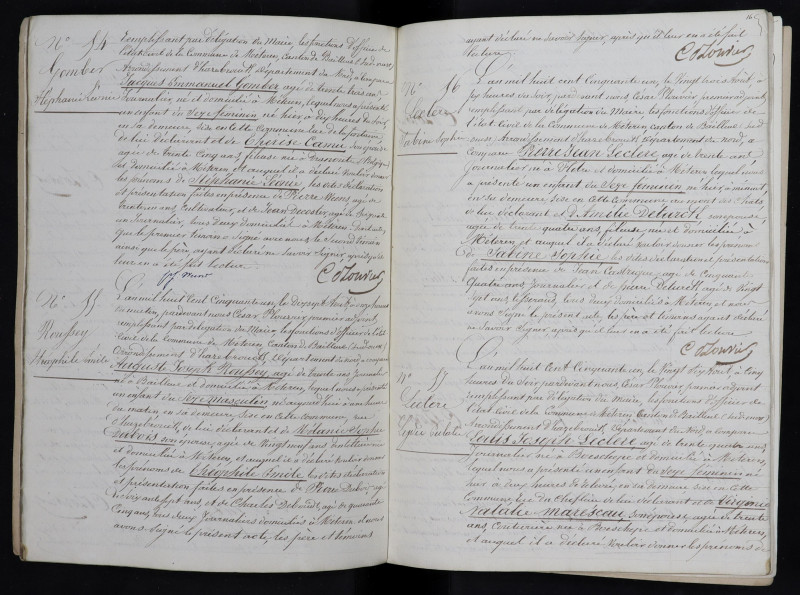 N° 54
Gombert
Stéphanie Léonie
remplissant par délégation du Maire, les fonctions d'officier de
l'état civil de la Commune de Méteren, canton de Bailleul Sud ouest,
Arrondissement d'hazebrouck, Département du Nord, a comparu
Jacques Emmanuel Gombert, agé de trente trois ans
Journalier, né et domicilié à Méteren, lequel nous a présenté
un enfant du Sexe feminin né hier a dix heures du soir,
en sa demeure, sise en cette Commune
de lui déclarant et de Thérèse Camu, son épouse,
agée de trente cinq ans, fileuse née à
domiciliée à Méteren et auquel il a déclaré vouloir donner
les prénoms de Stéphanie Léonie, les dites déclaration
et présentation faites en présence de Pierre
trente un ans, Cultivateur, et de Jean Decoster, agé de
ans Journalier, tous deux domiciliés à Méteren
que le premier témoin a signé avec nous, le second témoin
ainsi que le père, ayant déclaré ne savoir signer, après qu'il
leur en a été fait lecture.
C Plouvier
N° 55
Roussey
Théophile Emile
L'an mil huit cent Cinquante un, le Dix sept Août, à sept heures
du matin, pardevant nous César Plouvier premier adjoint,
remplissant par délégation du Maire, les fonctions d'officier de l'état
civil de la commune de Méteren, Canton de Bailleul (Sud ouest)
Arrondissement d'hazebrouck, Département du Nord, a comparu
Auguste Joseph Roussey, agé de trente ans Journalier
né à Bailleul et domicilié à Méteren, lequel nous a présenté
un enfant du Sexe masculin né aujourd'hui à une heure
du matin, en sa demeure, sise en cette commune, rue
d'hazebrouck, de lui déclarant et de Mélanie Sophie
Dubois son épouse, agée de Vingt neuf ans, dentellière
et domiciliée à Méteren, et auquel il a déclaré vouloir donner
les prénoms de Théophile Emile, les dites déclaration
et présentation, faites en présence de Pierre Dubois, agé
de ans, et de Charles Debruyne, agé de quarante
Cinq ans, tous deux Journaliers domiciliés à Méteren, et nous
avons signé le présent acte, les père et témoins
16
ayant déclaré ne savoir signer, après qu'il leur en a été fait
lecture.
C Plouvier
N° 56
Leclerc
Sabine Sophie
L'an mil huit cent Cinquante un, le Vingt trois Août, à
heures du soir, pardevant nous, César Plouvier premier adjoint,
remplissant par délégation du Maire les fonctions d'officier de
l'état civil de la Commune de Méteren canton de Bailleul Sud
ouest, Arrondissement d'hazebrouck, département du Nord, a
comparu Pierre Jean Leclerc, agé de trente ans
Journalier né à Flêtre et domicilié à Méteren, lequel nous
a présenté un enfant du Sexe feminin né hier a minuit,
en sa demeure, sise en cette Commune
de lui déclarant et D'Amélie Deturck son épouse,
agée de trente quatre ans, fileuse, née et domiciliée à
Méteren et auquel il a déclaré vouloir donner les prénoms
de Sabine Sophie, les dites déclaration et présentation
faites en présence de Jean agé de Cinquante
quatre ans, Journalier et de pierre Deturck, agé de Vingt
sept ans, tisserand, tous deux domiciliés à Méteren et nous
avons signé le présent acte, les père et témoins ayant déclaré
ne savoir signer, après qu'il leur en a été fait lecture
C Plouvier
N° 57
Leclerc
L'an mil huit cent Cinquante un, le Vingt six Août, à cinq
heures du soir pardevant nous, César Plouvier, premier adjoint
remplissant par délégation du Maire, les fonctions d'officier de
l'état civil de la Commune de Méteren Canton de Bailleul (Sud ouest)
Arrondissement d'hazebrouck, Département du Nord, a comparu
Louis Joseph Leclerc, agé de trente quatre ans,
Journalier né à Boeschepe et domicilié à Méteren,
lequel nous a présenté un enfant du Sexe feminin né
hier à dix heures de relevée, en sa demeure sise en cette
Commune, de lui déclarant et de Virginie
Natalie Marescau, son épouse, agée de trente
ans, Couturière née à Boeschepe et domiciliée à Méteren,
et auquel il a déclaré vouloir donner les prénoms de